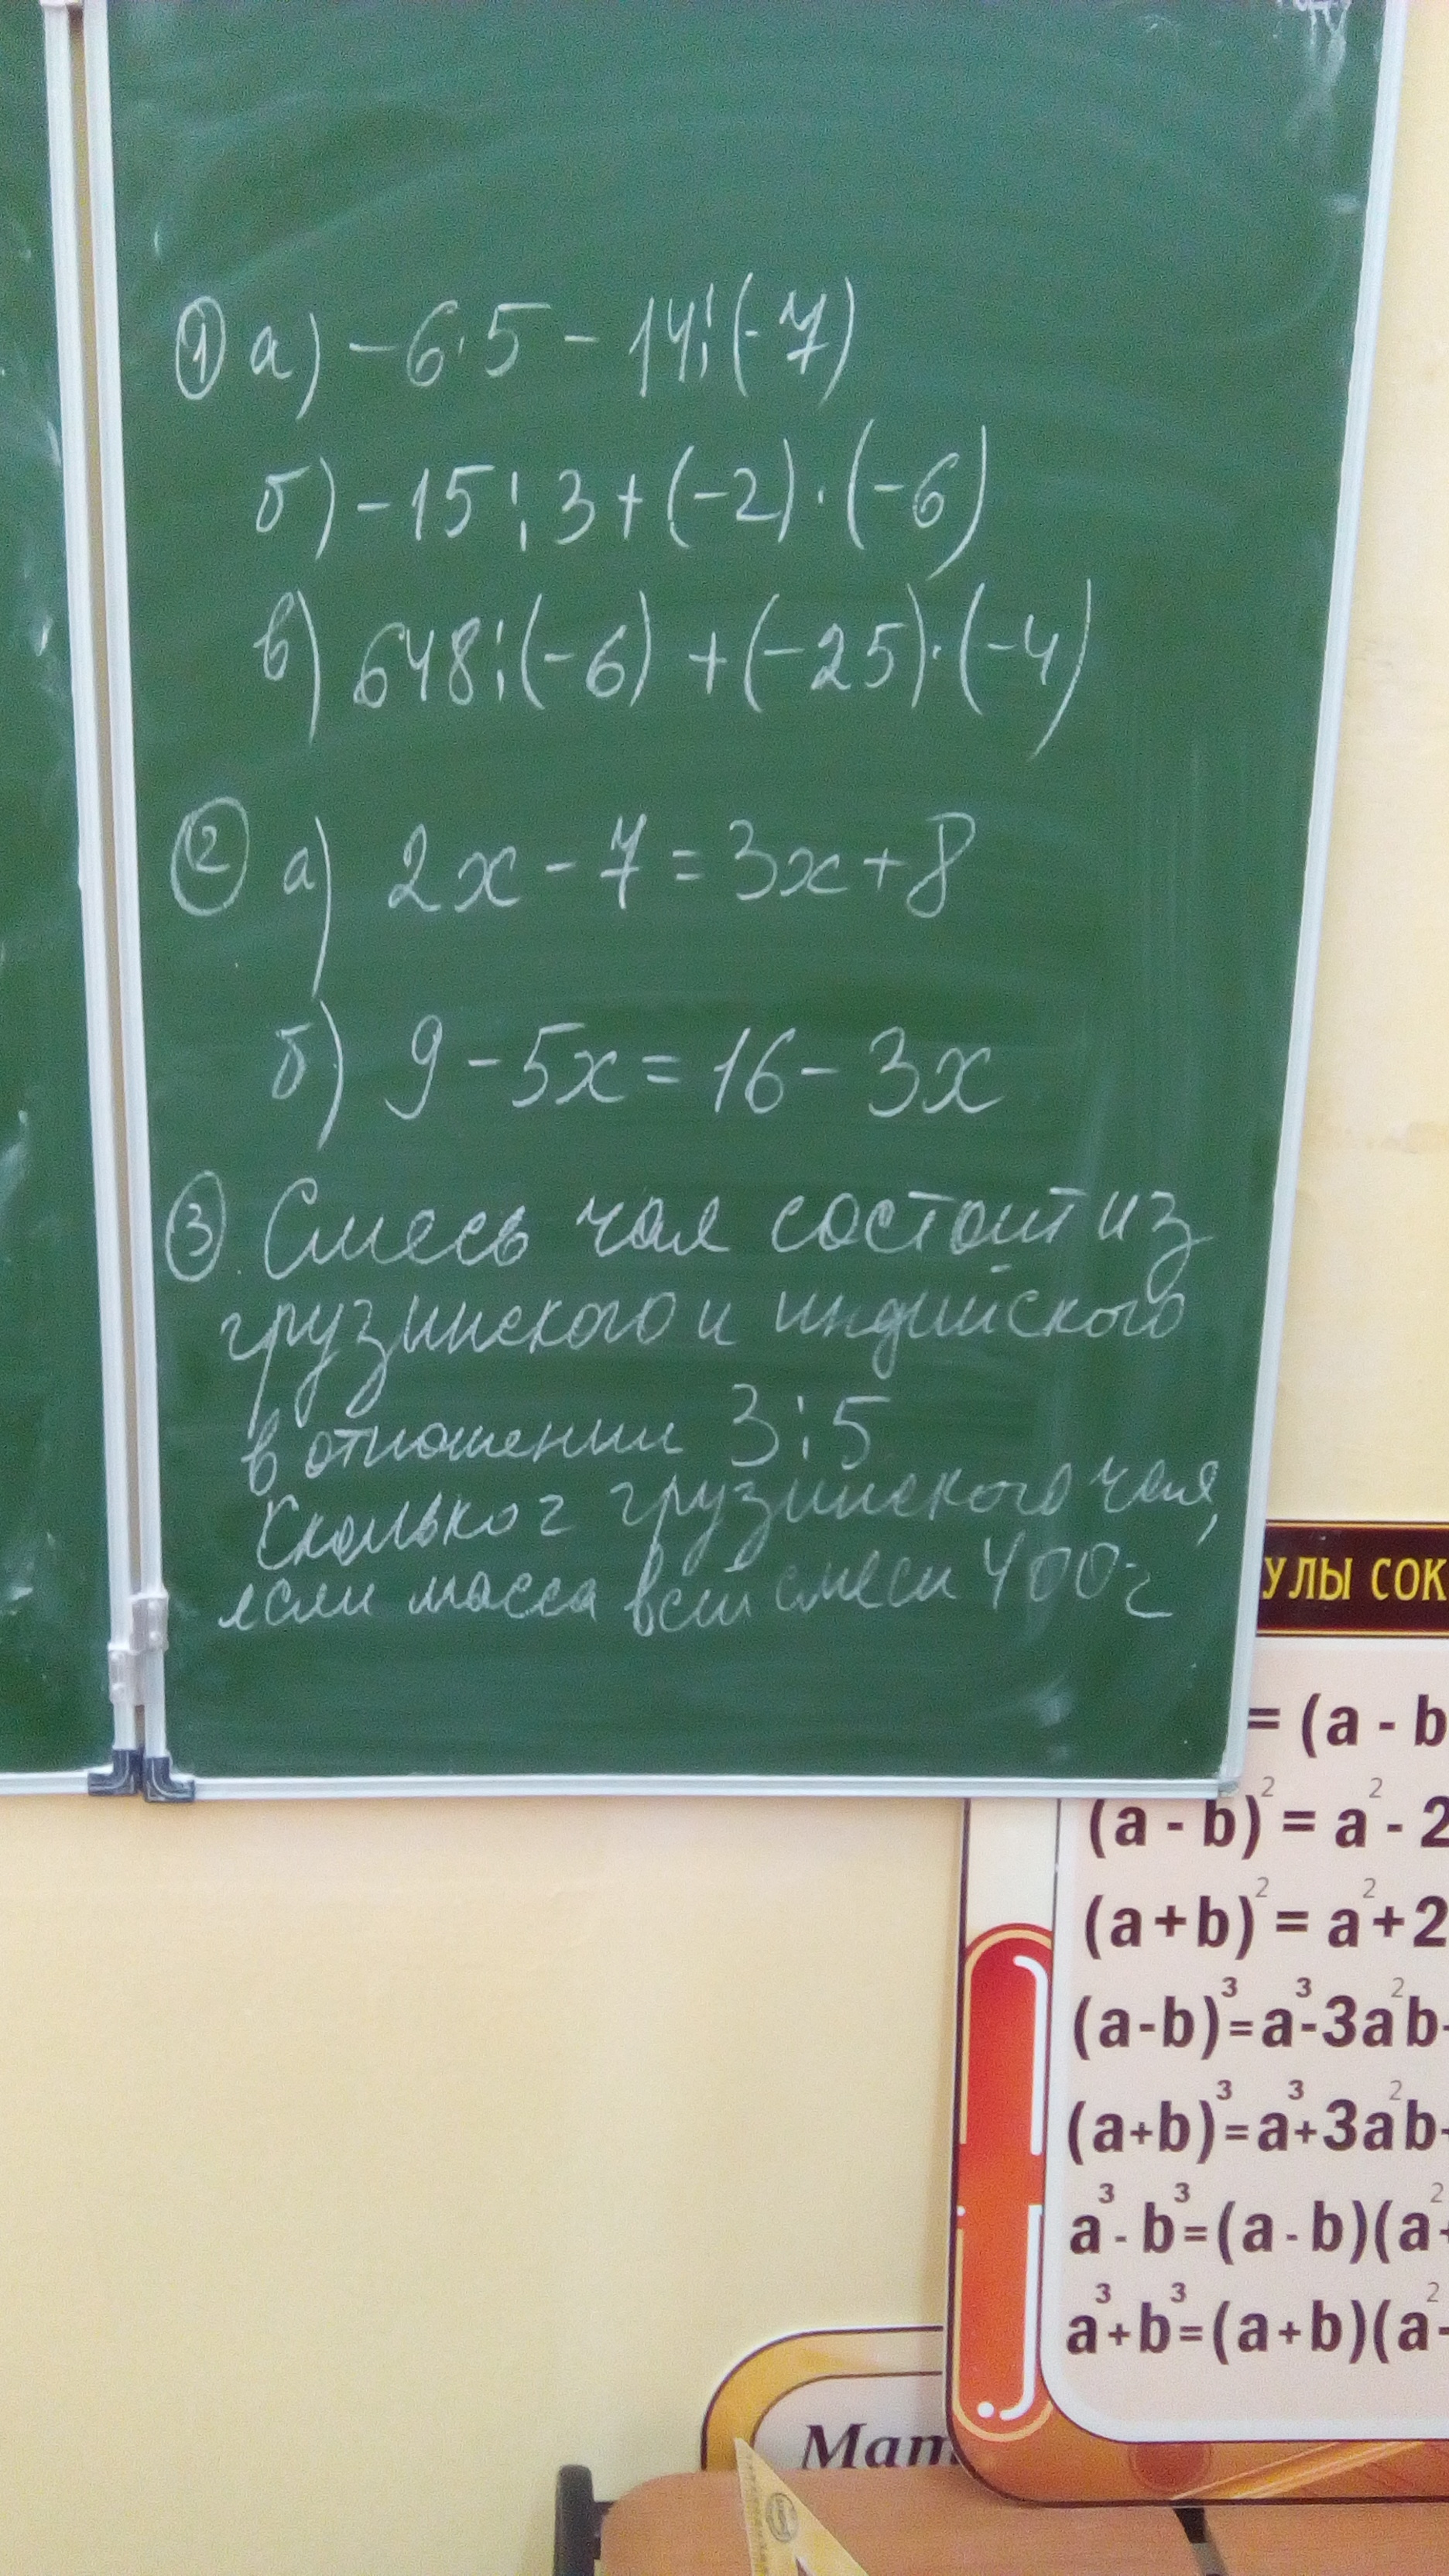 ① а) -6·5 - 14:(-7)
б) -15:3+(-2)·(-6)
в) 648:(-6) +(-25)·(-4)
② а) 2x - 7 = 3x + 8
б) 9 - 5x = 16 - 3x
③. Смесь чая состоит из
грузинского и индийского
в отношении 3:5
Сколько г грузинского чая,
если масса всей смеси 400г
УЛЫ СОК
= (a - b
(a - b)² = a² - 2
(a + b)² = a² + 2
(a - b)³ = a³ - 3a²b -
(a + b)³ = a³ + 3a²b -
a³ - b³ = (a - b)(a² +
a³ + b³ = (a + b)(a² -
Мат